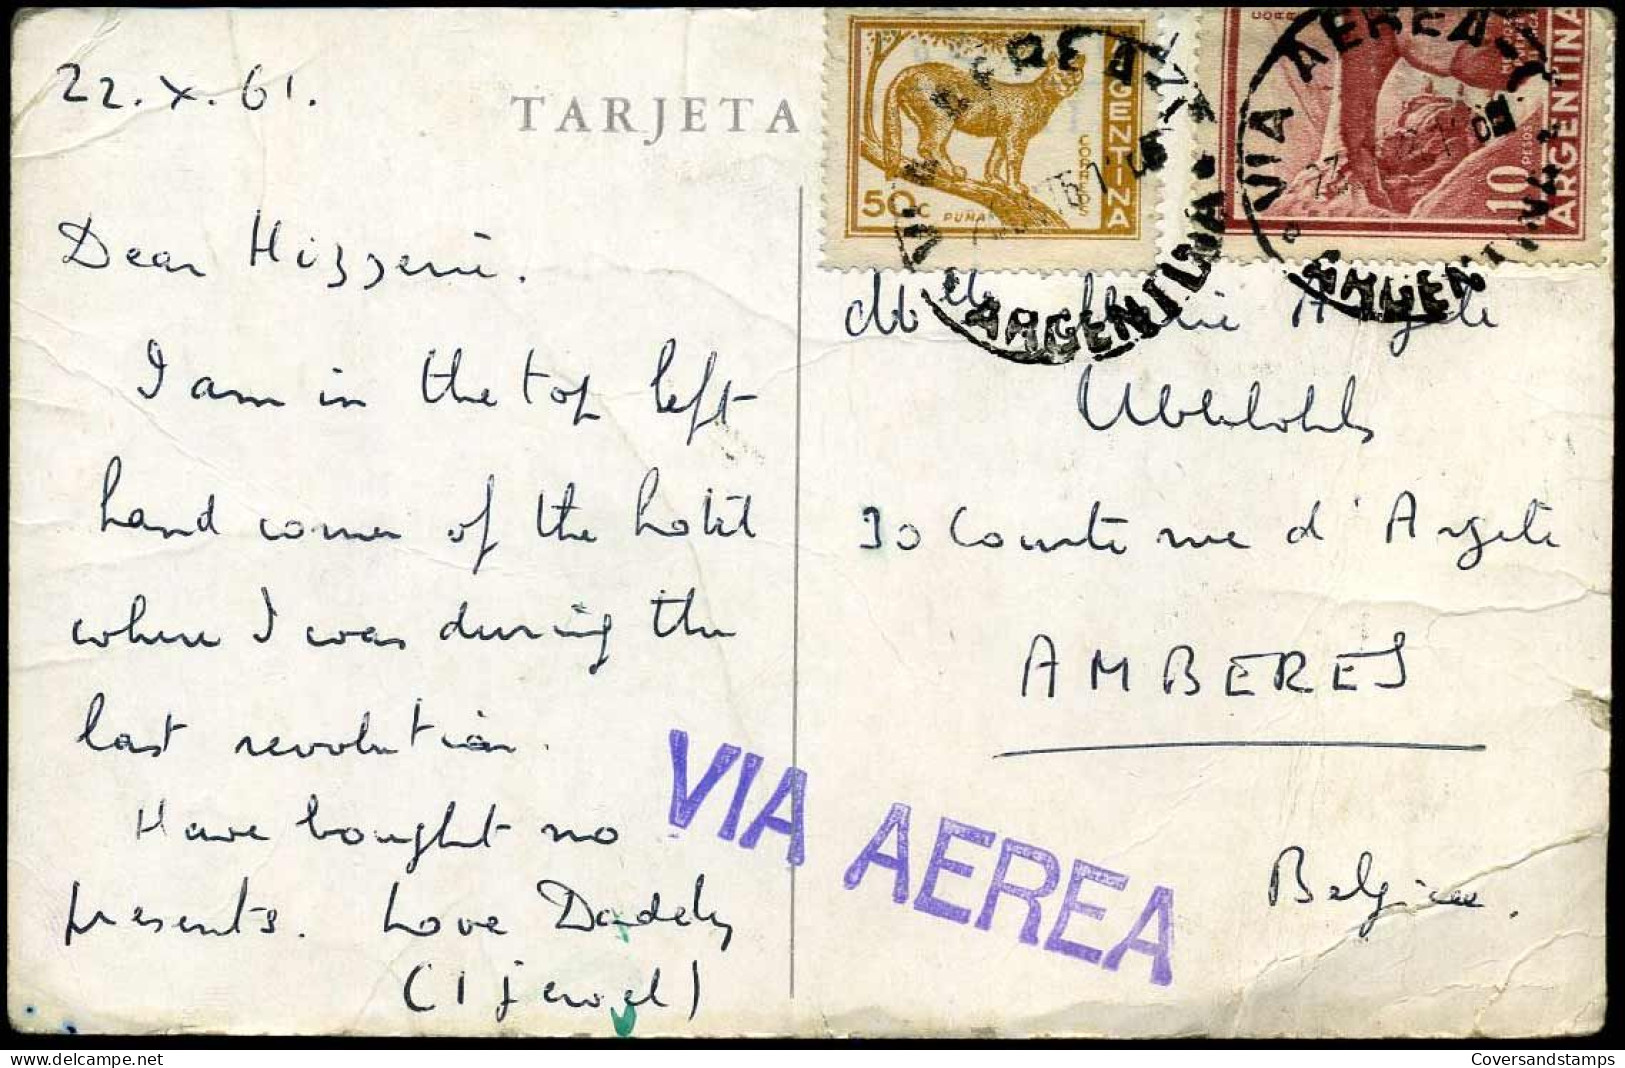 22.X.61.
TARJETA
Dear Hizzerie.
I am in the top left
hand corner of the hotel
where I was during the
last revolution.
Have bought no
presents. Love Daddy
(1 jewel)
50c
PUMA
CORREOS
ARGENTINA
VIA AEREA
ARGENTINA
10 PESOS
ARGENTINA
VIA AEREA
ARGENTINA
Mlle Marie Angele
30 Courte rue d'Argile
AMBERES
Belgica.
VIA AEREA
Coversandstamps